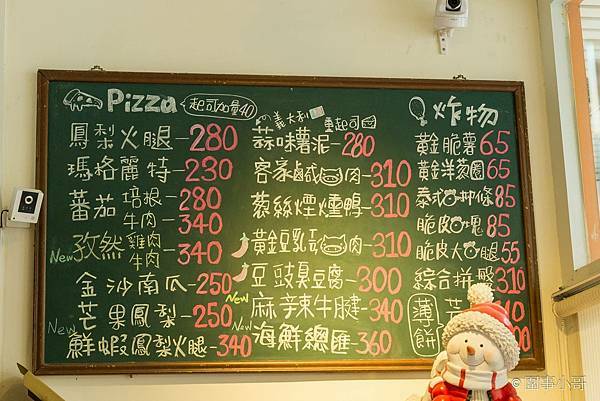 Pizza 起司加量40
鳳梨火腿-280
瑪格麗特-230
蕃茄 培根-280
牛肉-340
New 孜然 雞肉
牛肉-340
金沙南瓜-250
芒果鳳梨-250
New 鮮蝦鳳梨火腿-340
義大利
重起司
蒜味薯泥-280
客家鹹肉-310
蔥絲煙燻鴨-310
黃金豆乳肉-310
豆豉臭豆腐-300
New 麻辣牛腱-340
New 海鮮總匯-360
炸物
黃金脆薯65
黃金洋蔥圈65
泰式柳條85
脆皮塊85
脆皮大腿55
綜合拼盤310
薄餅
© 圍事小哥